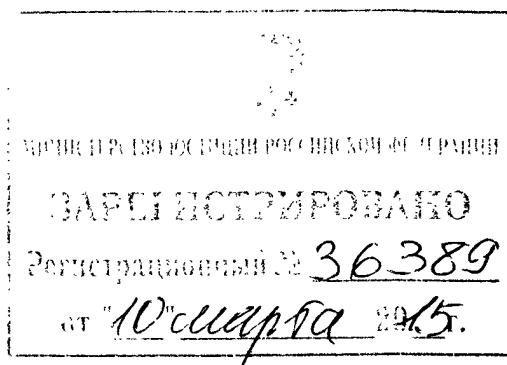 МИНИСТЕРСТВО ЮСТИЦИИ РОССИЙСКОЙ ФЕДЕРАЦИИ
ЗАРЕГИСТРИРОВАНО
Регистрационный № 36389
от "10" марта 2015г.